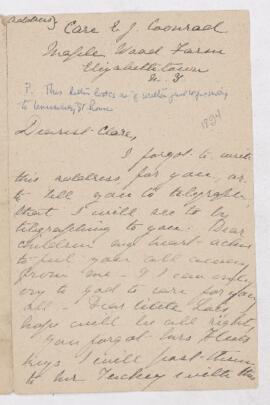 (address)
Care E J Coonrad
Maple Wood Farm
Elizabethtown
N. Y
P. This letter looks as if written just
to
1894
Dearest Clare,
I forgot to write
this address for you, or
to tell you to telegraph
that I will see to by
telegraphing to you. Dear
children my heart aches
to feel your all away
from me - & I can only
cry to god to care for you
all - Dear little
hope will be all right,
You forgot Mrs
keys I will post them
to Mr Tuckey with this